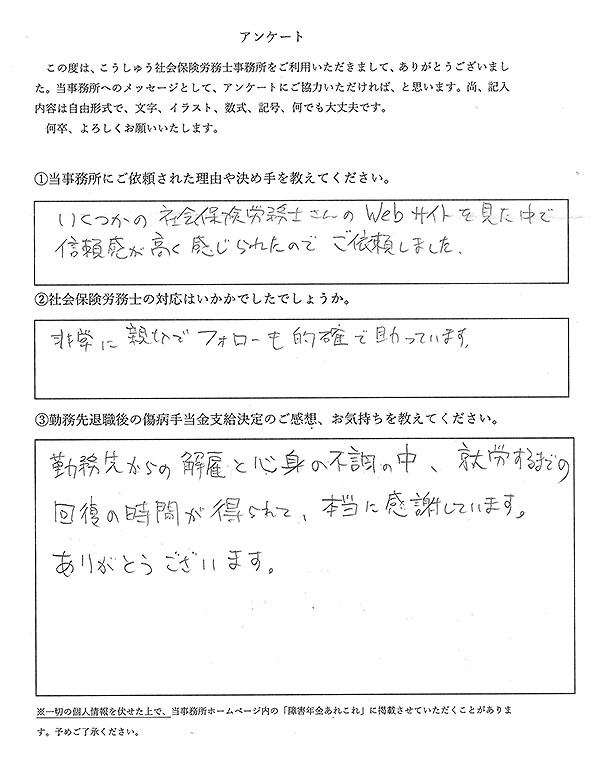 アンケート
この度は、こうしゅう社会保険労務士事務所をご利用いただきまして、ありがとうございまし
た。当事務所へのメッセージとして、アンケートにご協力いただければ、と思います。尚、記入
内容は自由形式で、文字、イラスト、数式、記号、何でも大丈夫です。
何卒、よろしくお願いいたします。
①当事務所にご依頼された理由や決め手を教えてください。
いくつかの社会保険労務士さんのWebサイトを見た中で
信頼感が高く感じられたのでご依頼しました。
②社会保険労務士の対応はいかかでしたでしょうか。
非常に親切でフォローも的確で助っています。
③勤務先退職後の傷病手当金支給決定のご感想、お気持ちを教えてください。
勤務先からの解雇と心身の不調の中、就労するまでの
回復の時間が得られて、本当に感謝しています。
ありがとうございます。
※一切の個人情報を伏せた上で、当事務所ホームページ内の「障害年金あれこれ」に掲載させていただくことがありま
す。予めご了承ください。